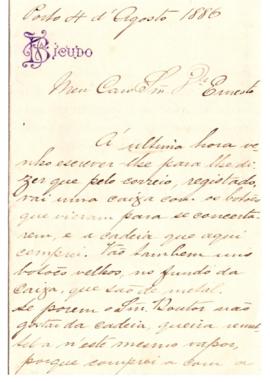 Porto 4 d'Agosto 1886
BICUDO
Meu Caro Snr. Dr. Ernesto
A' ultima hora ve
nho escrever-lhe para lhe di
zer que pelo correio, registado,
vai uma caixa com os botões
que vieram para se concerta
rem, e a cadeia que aqui
comprei. Vão tambem uns
botões velhos, no fundo da
caixa, que são de metal.
Se porem o Snr. Doutor não
gostar da cadeia, queira remet
tel-a n'este mesmo vapor,
porque comprei-a com a